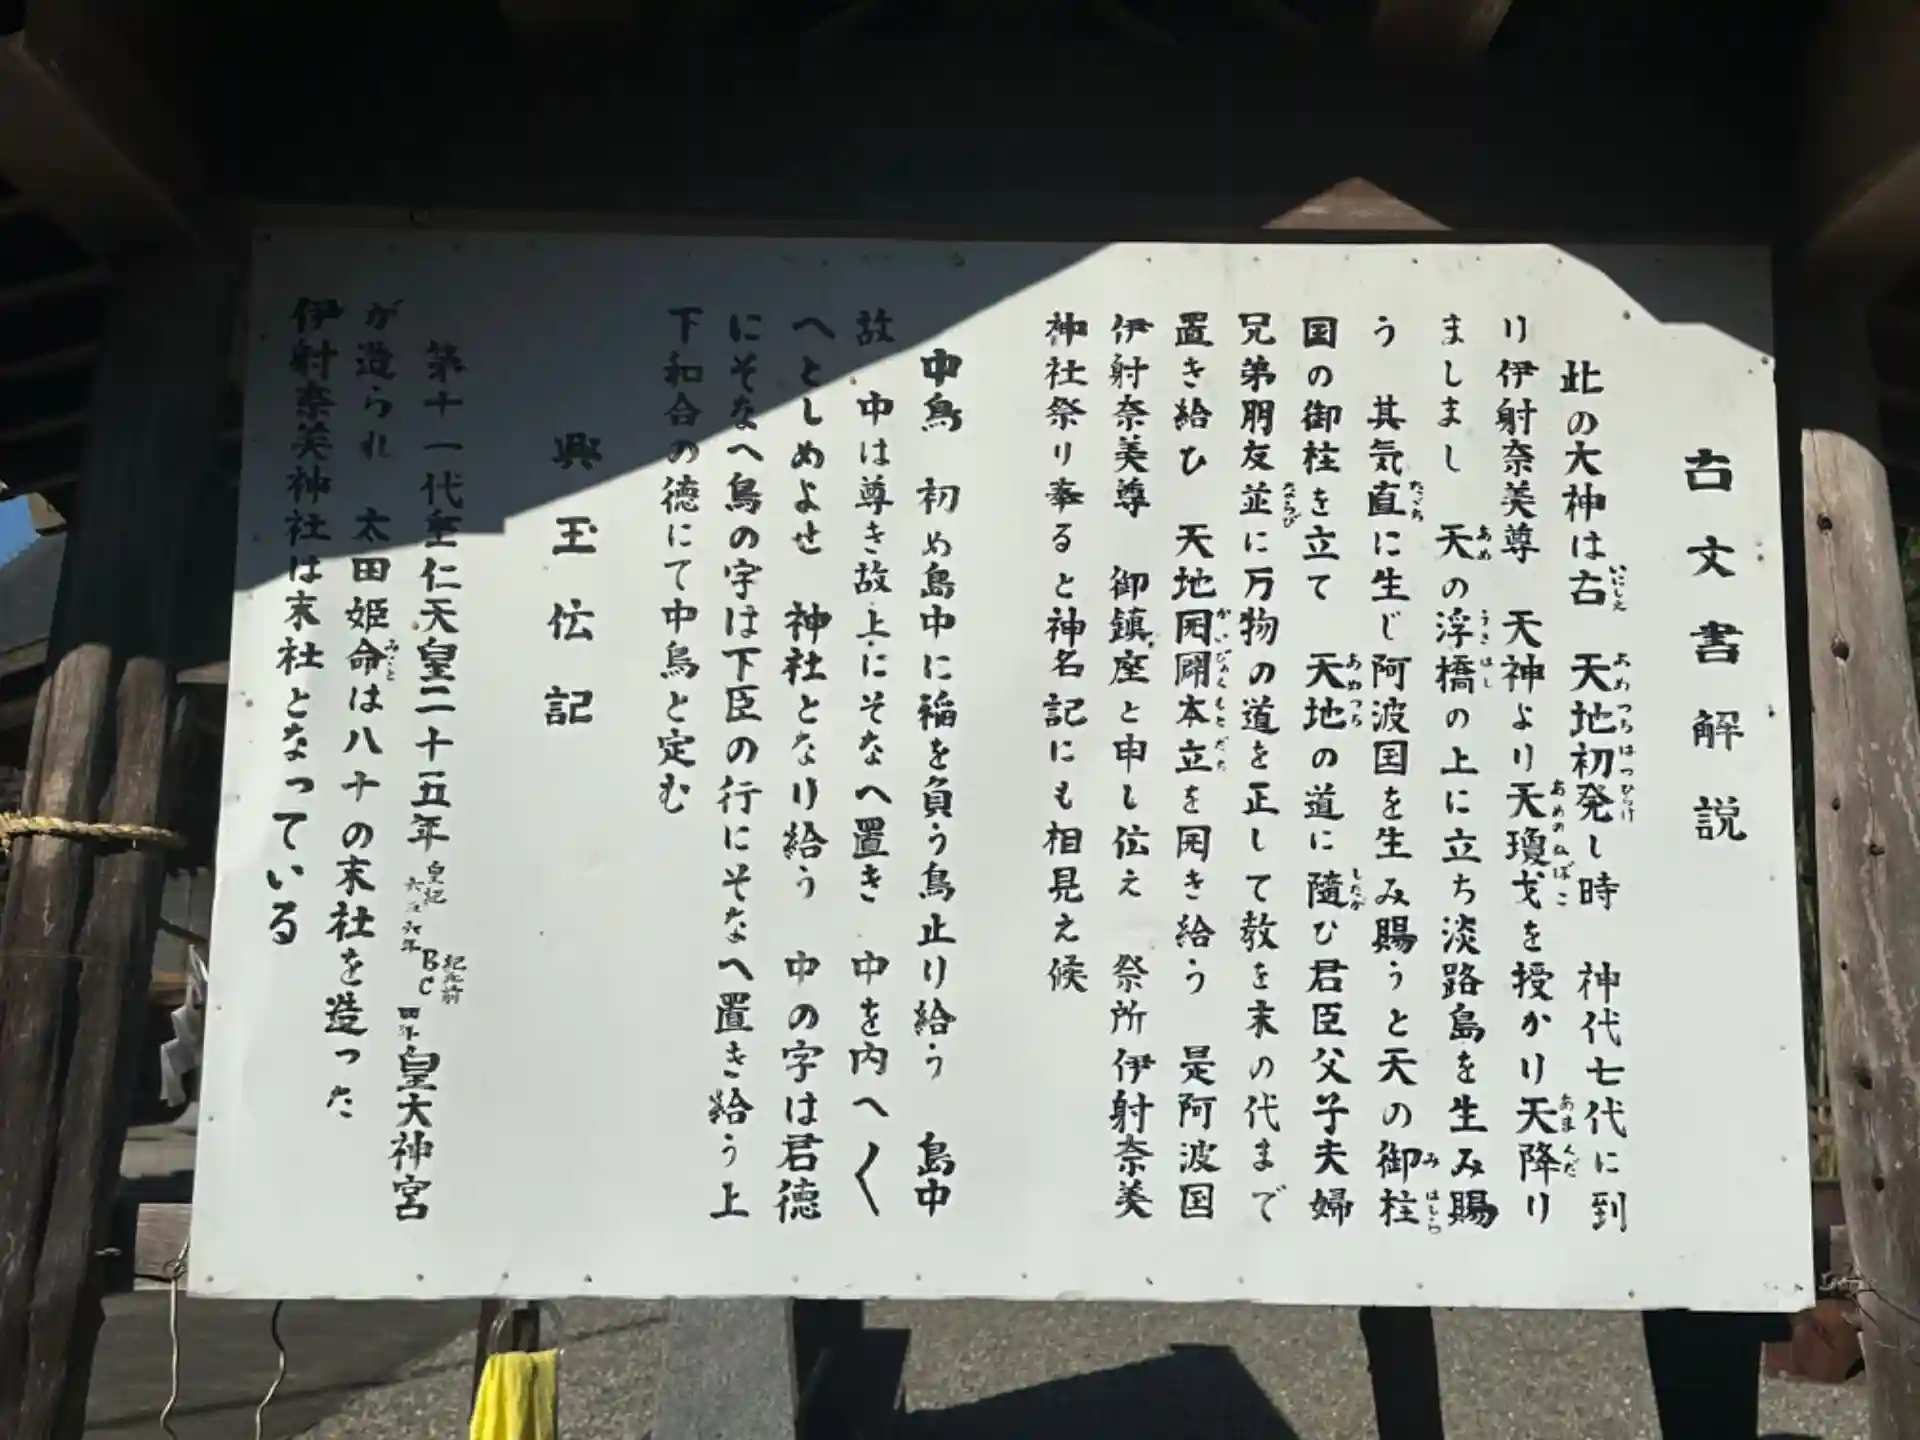 古文書解説
此の大神は古 天地初発し時 神代七代に到
り伊射奈美尊 天神より天瓊戈を授かり天降り
ましまし 天の浮橋の上に立ち淡路島を生み賜
う 其気直に生じ阿波国を生み賜うと天の御柱
国の御柱を立て 天地の道に隨ひ君臣父子夫婦
兄弟朋友並に万物の道を正して教を末の代まで
置き給ひ 天地開闢本立を開き給う 是阿波国
伊射奈美尊 御鎮座と申し伝え 祭所伊射奈美
神社祭り奉ると神名記にも相見え候
中鳥 初め島中に稲を負う鳥止り給う 島中
故 中は尊き故上にそなへ置き 中を内へ〱
へとしめよせ 神社となり給う 中の字は君徳
にそなへ鳥の字は下臣の行にそなへ置き給う上
下和合の徳にて中鳥と定む
興玉伝記
第十一代垂仁天皇二十五年 皇紀 六五六年 紀元前 BC 四年 皇大神宮
が造られ 太田姫命は八十の末社を造った
伊射奈美神社は末社となっている